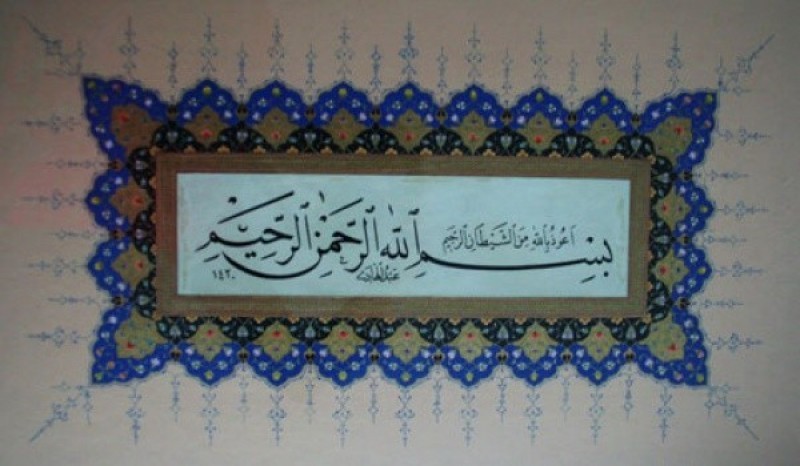 اَعُوذُ بِاللهِ مِنَ الشَّيْطَانِ الرَّجِيمِ
بِسْمِ ٱللّٰهِ ٱلرَّحْمٰنِ ٱلرَّحِيْمِ
١٤٢٠